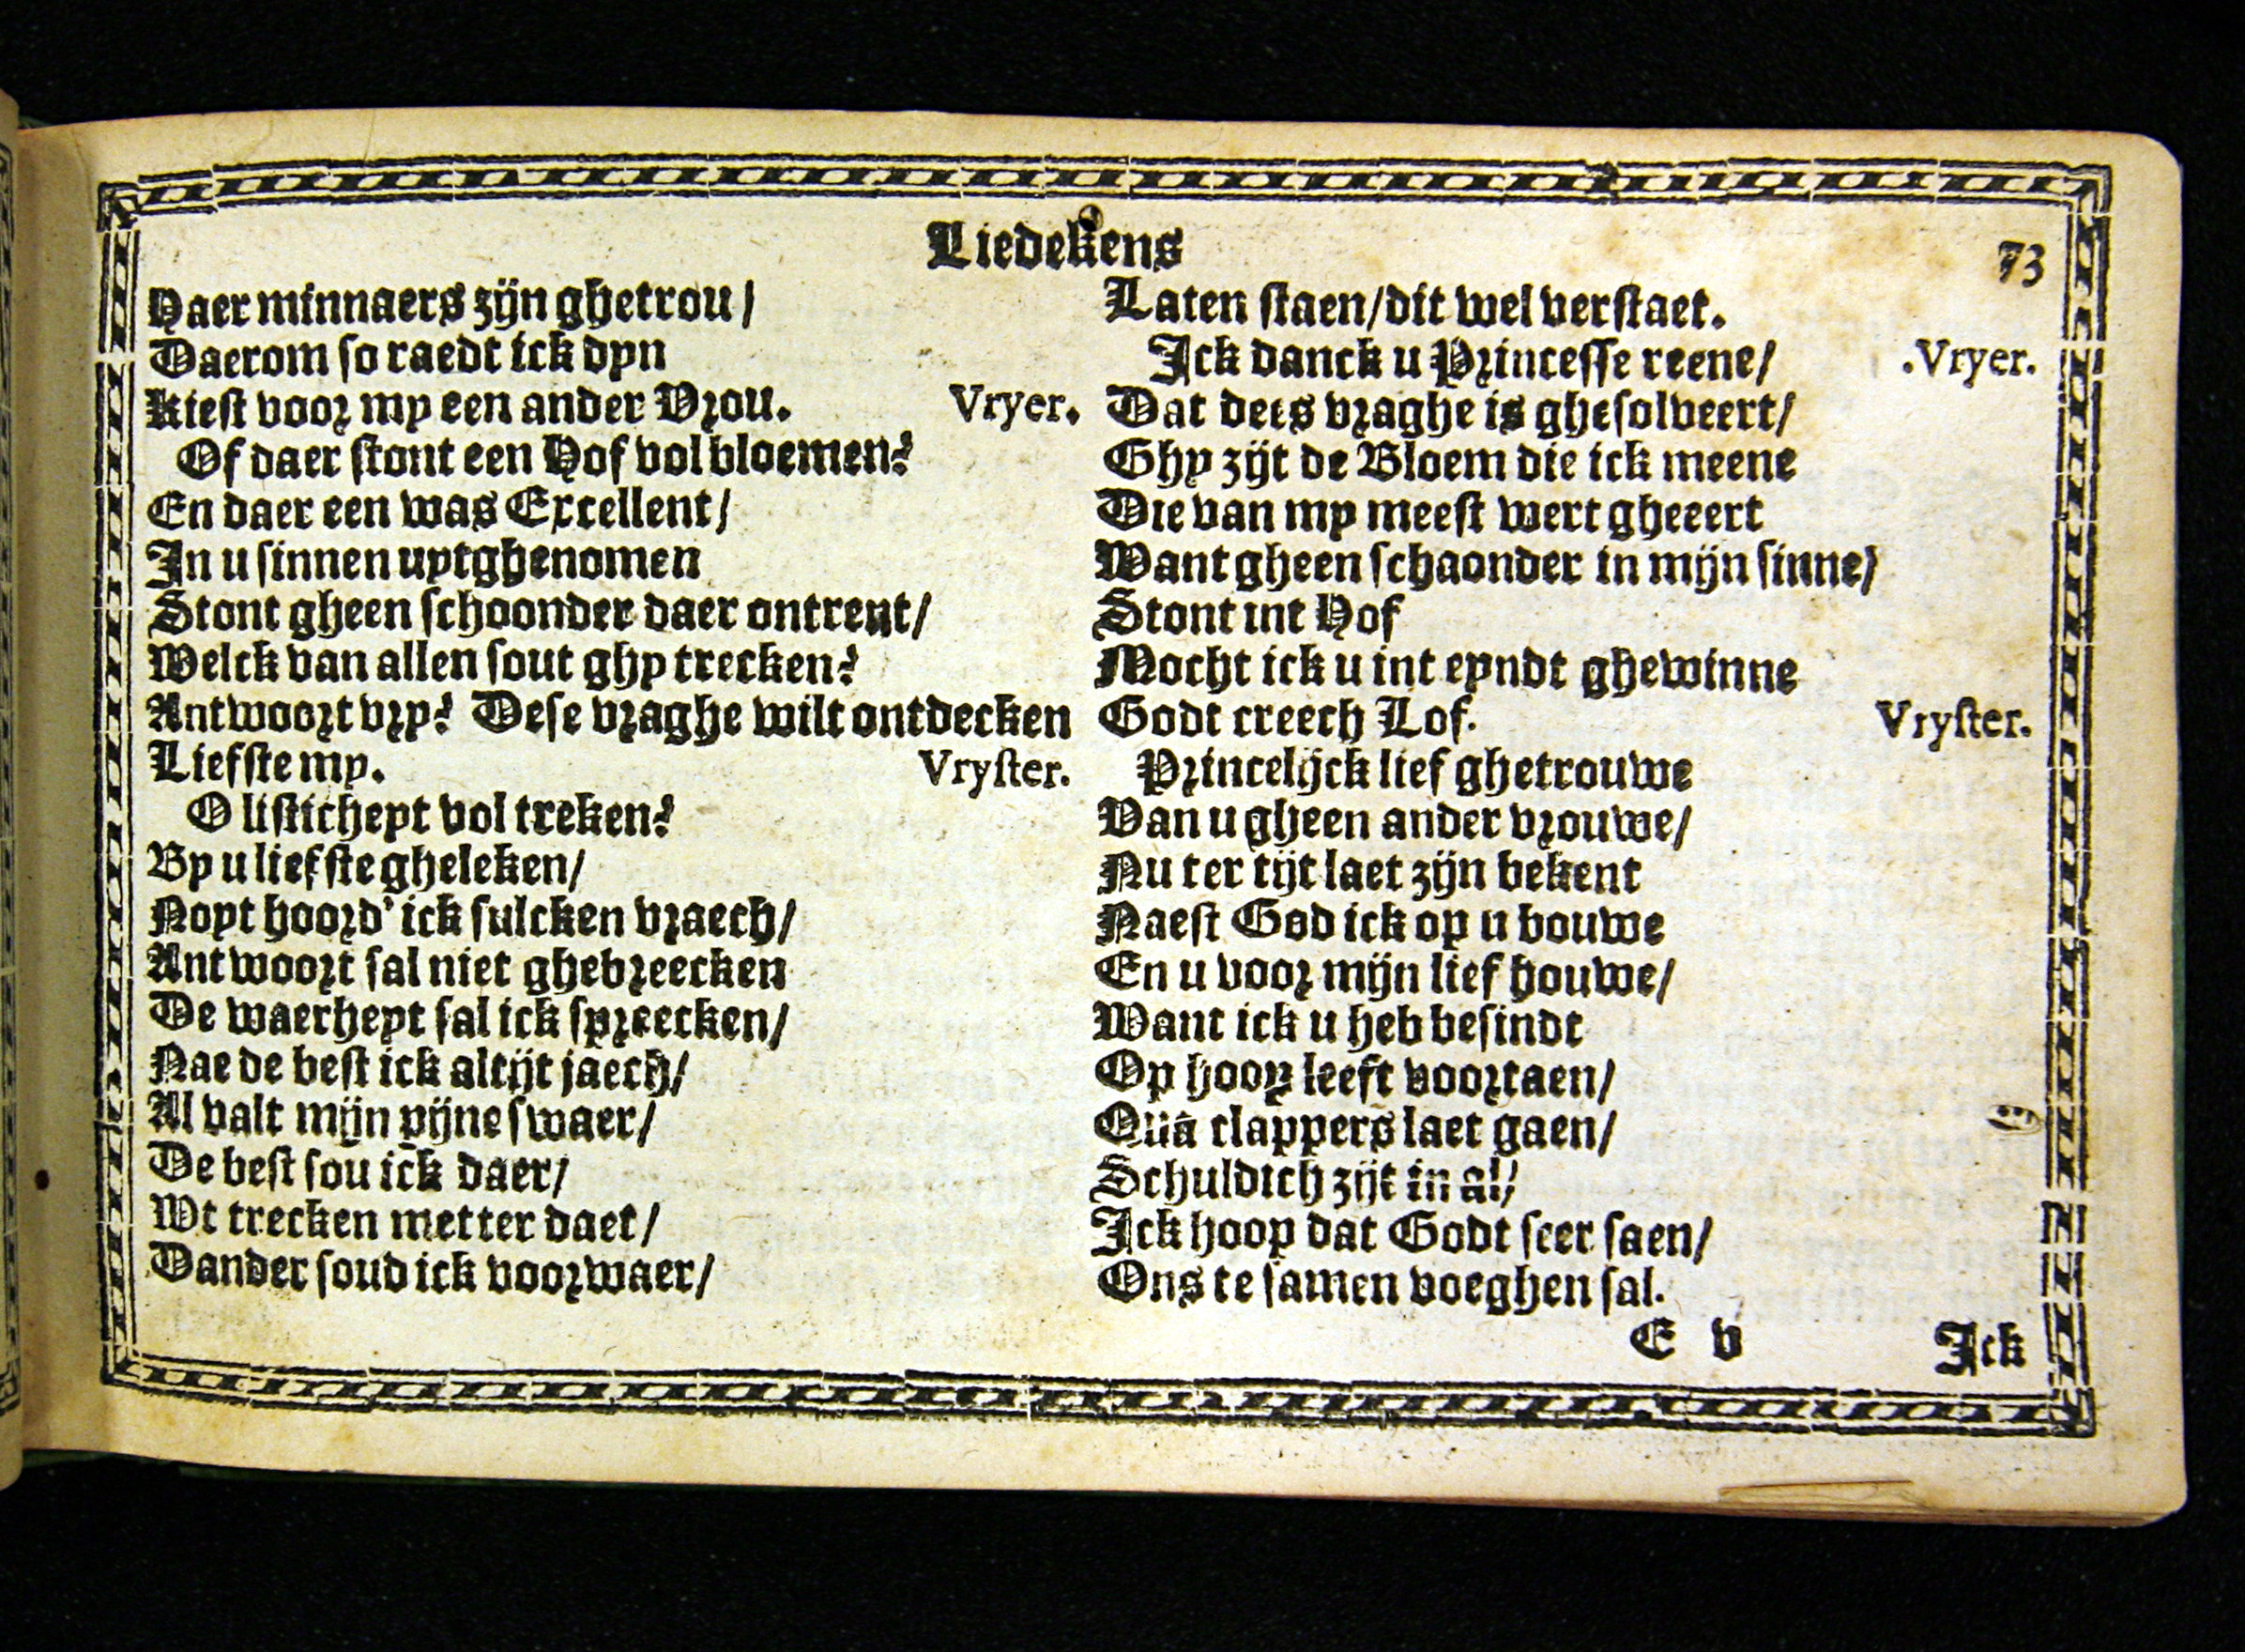 Liedekens
73
Haer minnaers zijn ghetrou /
Daerom so raedt ick dyn
Kiest voor my een ander Vrou.
Vryer.
Of daer stont een Hof vol bloemen?
En daer een was Excellent /
In u sinnen uytghenomen
Stont gheen schoonder daer ontrent /
Welck van allen sout ghy trecken?
Antwoort vry? Dese vraghe wilt ontdecken
Liefste my.
Vryster.
O listicheyt vol treken?
By u liefste gheleken /
Noyt hoord' ick sulcken vraech /
Antwoort sal niet ghebreecken
De waerheyt sal ick spreecken /
Nae de best ick altijt jaech /
Al valt mijn pijne swaer /
De best sou ick daer /
Wt trecken metter daet /
Dander soud ick voorwaer /
Laten staen / dit wel verstaet.
Ick danck u Princesse reene /
.Vryer.
Dat dees vraghe is ghesolveert /
Ghy zijt de Bloem die ick meene
Die van my meest wert gheeert
Want gheen schaonder in mijn sinne /
Stont int Hof
Mocht ick u int eyndt ghewinne
Godt creech Lof.
Vryster.
Princelijck lief ghetrouwe
Van u gheen ander vrouwe /
Nu ter tijt laet zijn bekent
Naest God ick op u bouwe
En u voor mijn lief houwe /
Want ick u heb besindt
Op hoop leeft voortaen /
Quā clappers laet gaen /
Schuldich zijt in al /
Ick hoop dat Godt seer saen /
Ons te samen voeghen sal.
E v
Ick